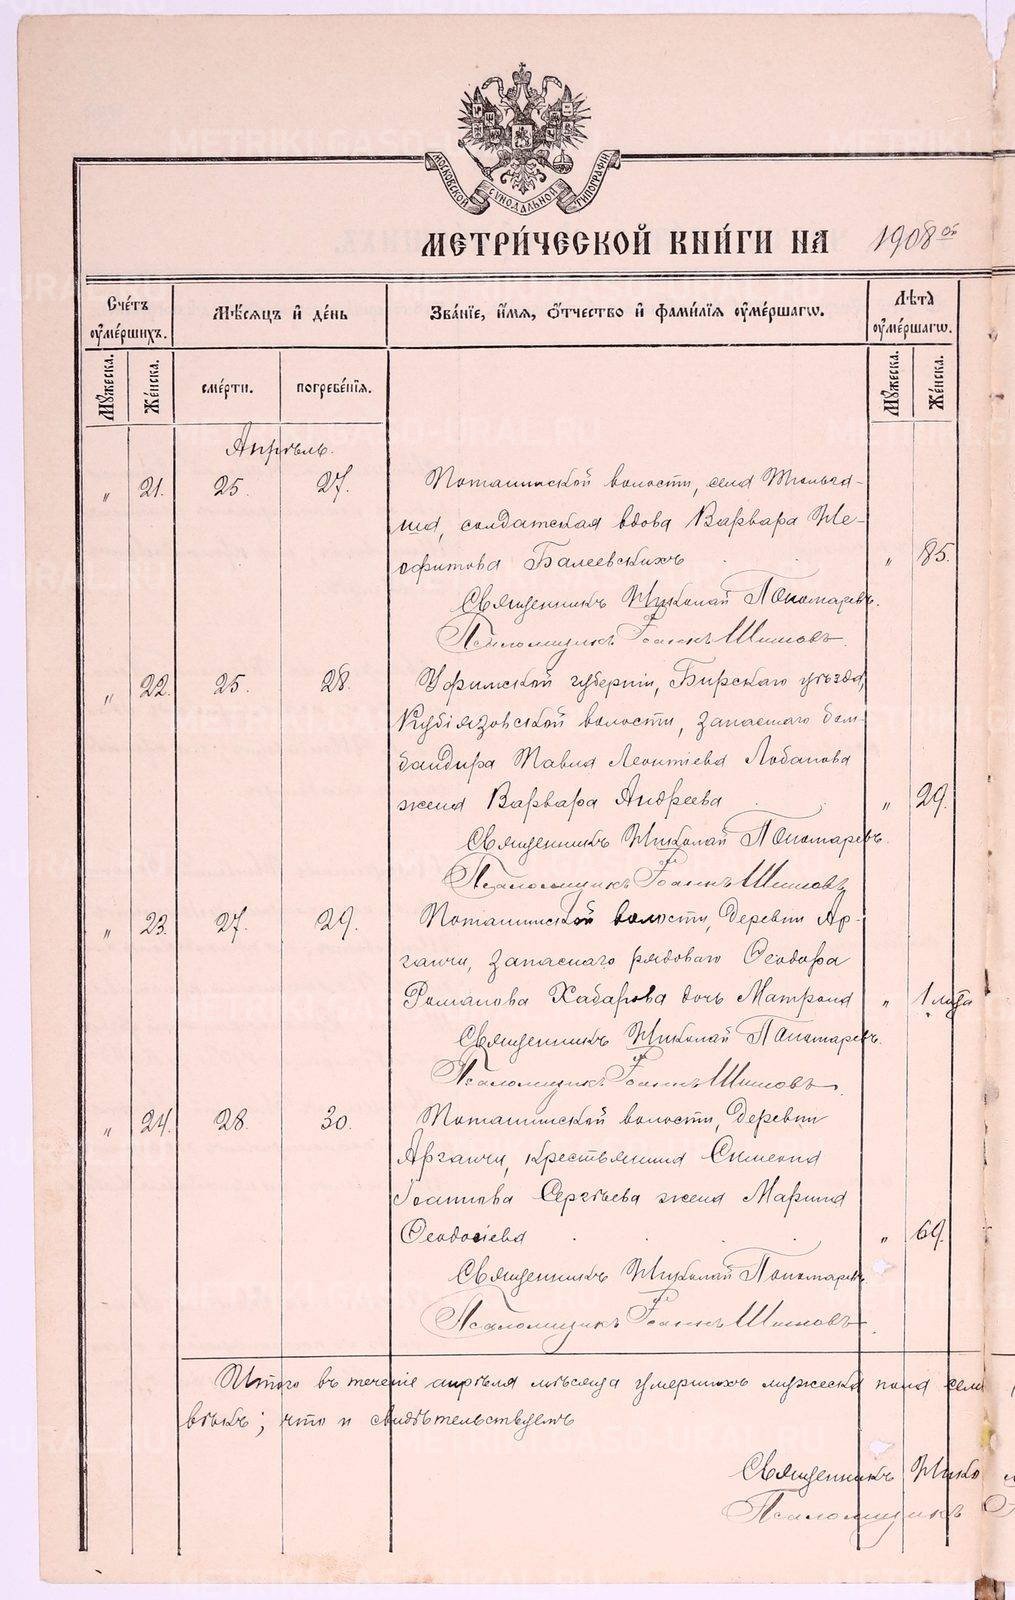 МОСКОВСКОЙ СѴНОДАЛЬНОЙ ТИПОГРАФІИ
МЕТРИ́ЧЕСКОЙ КНИ́ГИ НА 1908 ой
Сче́тъ оу҆ме́ршихъ.
Мѣ́сяцъ и҆ де́нь
Зва́нїе, и҆́мя, ѻ҆́тчество и҆ фами́лїя оу҆ме́ршагѡ.
Лѣ́та оу҆ме́ршагѡ.
Му́жеска.
Же́нска.
сме́рти.
погребе́нїя.
Му́жеска.
Же́нска.
Апрѣль.
" 21. 25. 27. Поташинской волости, села
ша, солдатская вдова Варвара Не-
офитова Балеевскихъ " 85.
Священникъ Николай Пономаревъ.
Псаломщикъ Іоаннъ Шишовъ.
" 22. 25. 28. Уфимской губерніи, Бирскаго уѣзда,
Кубіязовской волости, запасного бом-
бандира Павла Леонтіева Лобанова
жена Варвара Андреева " 29.
Священникъ Николай Пономаревъ.
Псаломщикъ Іоаннъ Шишовъ
" 23. 27. 29. Поташинской волости, деревни Ар-
ганчи, запаснаго рядоваго Ѳеодора
Романова Хабарова дочь Матрона " 1 года
Священникъ Николай Пономаревъ.
Псаломщикъ Іоаннъ Шишовъ.
" 24. 28. 30. Поташинской волости, деревни
Арганчи, крестьянина Симеона
Іоаннова Сергѣева жена Марина
Ѳеодосіева " 69.
Священникъ Николай Пономаревъ.
Псаломщикъ Іоаннъ Шишовъ.
Итого въ теченіе апрѣля мѣсяца умершихъ мужеска пола семь
вѣкъ; что и свидѣтельствуемъ
Священникъ Нико
Псаломщикъ
METRIKI.GASO-URAL.RU